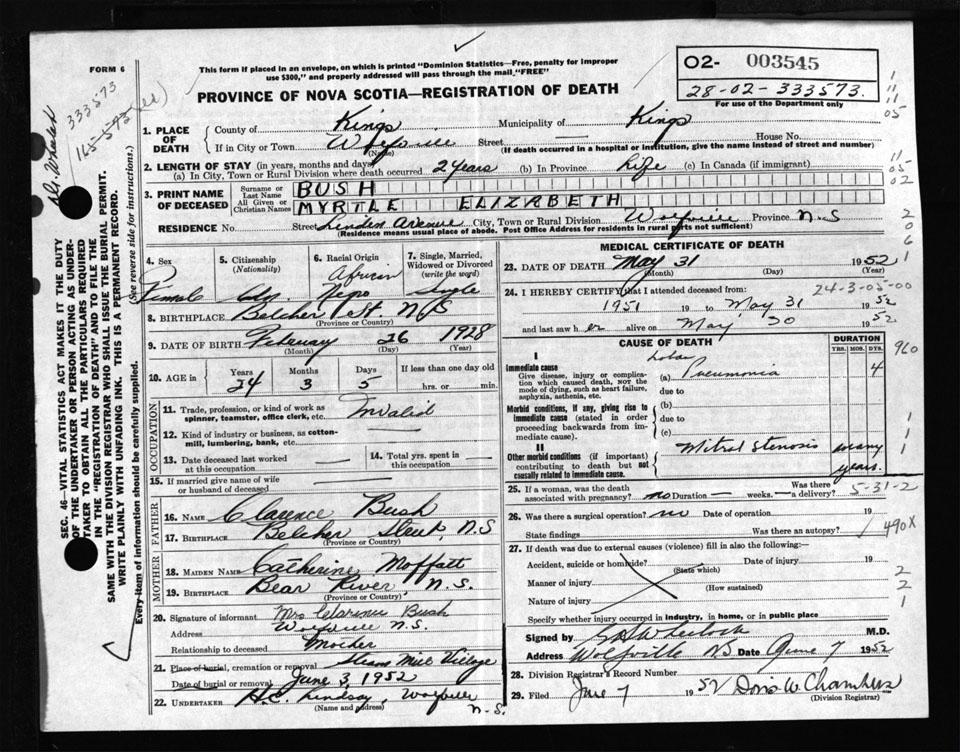 FORM 6
This form if placed in an envelope, on which is printed "Dominion Statistics—Free, penalty for improper
use $300," and properly addressed will pass through the mail "FREE"
PROVINCE OF NOVA SCOTIA—REGISTRATION OF DEATH
02- 003545
28-02-333573.
For use of the Department only
333573
1. PLACE OF DEATH
County of Kings Municipality of Kings
If in City or Town Wolfville Street House No.
(Name) (If death occurred in a hospital or institution, give the name instead of street and number)
2. LENGTH OF STAY (in years, months and days)
(a) In City, Town or Rural Division where death occurred 2 years (b) In Province Life (c) In Canada (if immigrant)
3. PRINT NAME OF DECEASED
Surname or Last Name BUSH
All Given or Christian Names MYRTLE ELIZABETH
RESIDENCE No. Street Linden Avenue City, Town or Rural Division Wolfville Province N.S
(Residence means usual place of abode. Post Office Address for residents in rural parts not sufficient)
4. Sex Female
5. Citizenship (Nationality)
6. Racial Origin African Negro
7. Single, Married, Widowed or Divorced (write the word) Single
8. BIRTHPLACE Belcher St. N S
(Province or Country)
9. DATE OF BIRTH February 26 1928
(Month) (Day) (Year)
10. AGE in Years 24 Months 3 Days 5 If less than one day old hrs. or min.
OCCUPATION
11. Trade, profession, or kind of work as spinner, teamster, office clerk, etc. Invalid
12. Kind of industry or business, as cotton-mill, lumbering, bank, etc.
13. Date deceased last worked at this occupation
14. Total yrs. spent in this occupation
15. If married give name of wife or husband of deceased
FATHER
16. NAME Clarence Bush
17. BIRTHPLACE Belcher Street, N.S
(Province or Country)
MOTHER
18. MAIDEN NAME Catherine Moffatt
19. BIRTHPLACE Bear River, N.S.
(Province or Country)
20. Signature of informant Mrs Clarence Bush
Address Wolfville N.S.
Relationship to deceased Mother
21. Place of burial, cremation or removal Steam Mill Village
Date of burial or removal June 3, 1952
22. UNDERTAKER H.C. Lindsay, Wolfville N.S.
(Name and address)
MEDICAL CERTIFICATE OF DEATH
23. DATE OF DEATH May 31 1952
(Month) (Day) (Year)
24. I HEREBY CERTIFY that I attended deceased from: 24-3-05-00
1951 19 to May 31 1952
and last saw her alive on May 30 1952
CAUSE OF DEATH
DURATION
YRS. MOS. DYS.
I
Immediate cause
Give disease, injury or complication which caused death, nor the mode of dying, such as heart failure, asphyxia, asthenia, etc.
Lobar
(a) Pneumonia 4
due to
Morbid conditions, if any, giving rise to immediate cause (stated in order proceeding backwards from immediate cause).
(b)
due to
(c)
II
Other morbid conditions (if important) contributing to death but not causally related to immediate cause.
Mitral Stenosis many years.
960
25. If a woman, was the death associated with pregnancy? no Duration — weeks. Was there a delivery? 5-31-2
26. Was there a surgical operation? no Date of operation 19
State findings Was there an autopsy?
490X
27. If death was due to external causes (violence) fill in also the following:—
Accident, suicide or homicide? Date of injury 19
(State which)
Manner of injury
(How sustained)
Nature of injury
Specify whether injury occurred in industry, in home, or in public place
Signed by M.D.
Address Wolfville NS Date June 7 1952
28. Division Registrar's Record Number
29. Filed June 7 1952 Doris W. Chambers
(Division Registrar)
SEC. 46—VITAL STATISTICS ACT MAKES IT THE DUTY
OF THE UNDERTAKER OR PERSON ACTING AS UNDER-
TAKER TO OBTAIN ALL THE PARTICULARS REQUIRED
IN THE "REGISTRATION OF DEATH" AND TO FILE THE
SAME WITH THE DIVISION REGISTRAR WHO SHALL ISSUE THE BURIAL PERMIT.
WRITE PLAINLY WITH UNFADING INK. THIS IS A PERMANENT RECORD.
Every item of information should be carefully supplied. (See reverse side for instructions.)